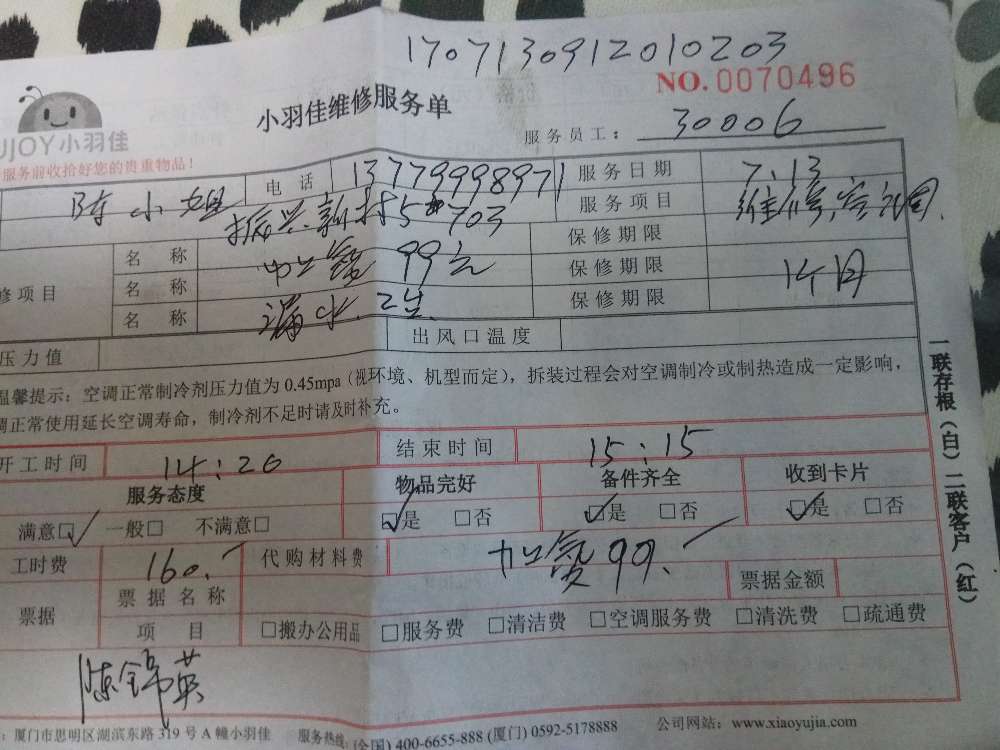 1707130912010203
NO.0070496
UJOY小羽佳
小羽佳维修服务单
服务员工： 30006
服务前收拾好您的贵重物品！
陈小姐 电话 13779998971 服务日期 7.13
振兴新村5 703 服务项目 维修,空调
修项目 名称 加氟 99元 保修期限
名称 漏水. 保修期限 1个月
名称 保修期限
压力值 出风口温度
温馨提示：空调正常制冷剂压力值为 0.45mpa（视环境、机型而定），拆装过程会对空调制冷或制热造成一定影响，
调正常使用延长空调寿命，制冷剂不足时请及时补充。
开工时间 14:20 结束时间 15:15
服务态度 物品完好 备件齐全 收到卡片
满意☑ 一般□ 不满意□ ☑是 □否 ☑是 □否 ☑是 □否
工时费 160. 代购材料费 加氟99. 票据金额
票据 票据名称
项目 □搬办公用品 □服务费 □清洁费 □空调服务费 □清洗费 □疏通费
陈锦英
：厦门市思明区湖滨东路 319 号 A 幢小羽佳 服务热线：(全国) 400-6655-888 (厦门) 0592-5178888 公司网站：www.xiaoyujia.com
一联存根（白）二联客户（红）